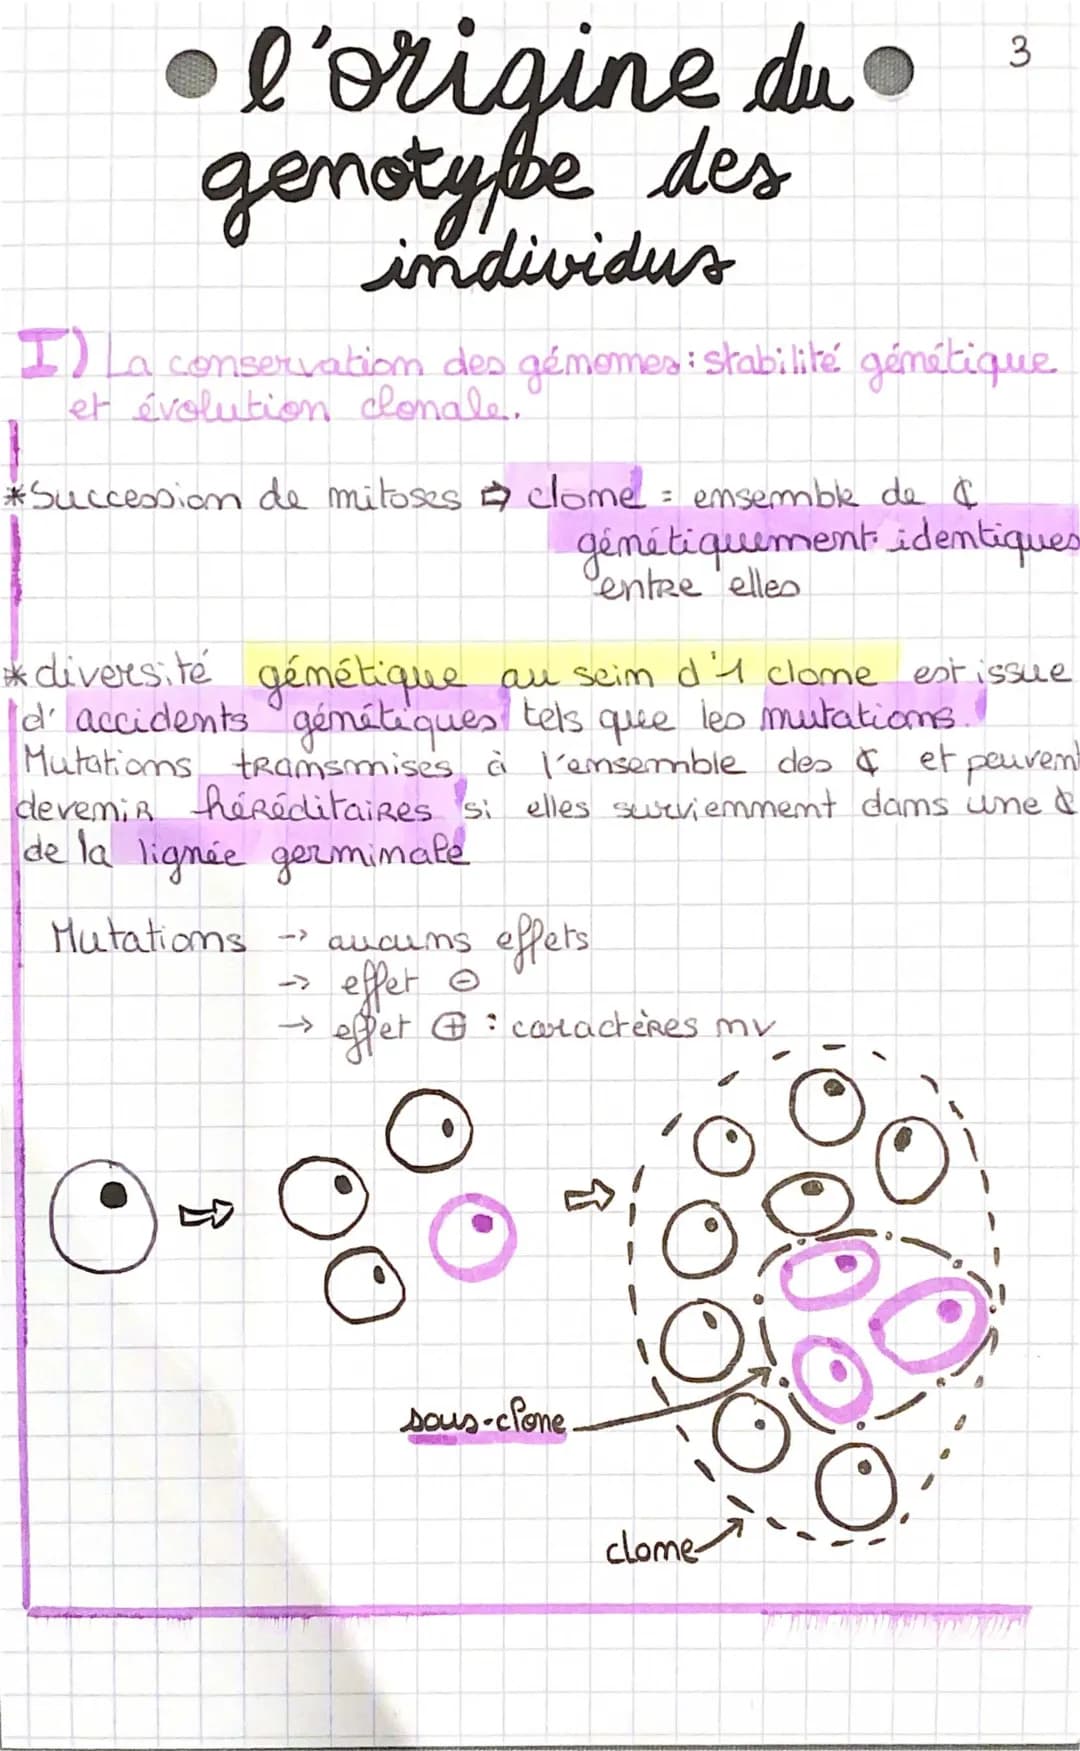 3
l'origine du
genotype des
individus
I) La conservation des génomes : stabilité génétique
et évolution clonale.
*Succession de mitoses ⇨ clone = ensemble de ¢
génétiquement identiques
entre elles
*diversité génétique au sein d'1 clone est issue
d'accidents génétiques tels que les mutations.
Mutations transmises à l'ensemble des ¢ et peuvent
devenir héréditaires si elles surviennent dans une ¢
de la lignée germinale
Mutations -> aucuns effets
-> effet ⊖
-> effet ⊕ : caractères nv
sous-clone
clone